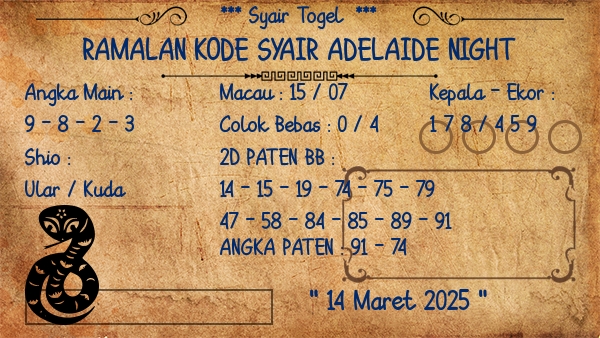 *** Syair Togel ***
RAMALAN KODE SYAIR ADELAIDE NIGHT
Angka Main :
9 - 8 - 2 - 3
Shio :
Ular / Kuda
Macau : 15 / 07
Colok Bebas : 0 / 4
2D PATEN BB :
14 - 15 - 19 - 74 - 75 - 79
47 - 58 - 84 - 85 - 89 - 91
ANGKA PATEN : 91 - 74
Kepala - Ekor :
1 7 8 / 4 5 9
" 14 Maret 2025 "